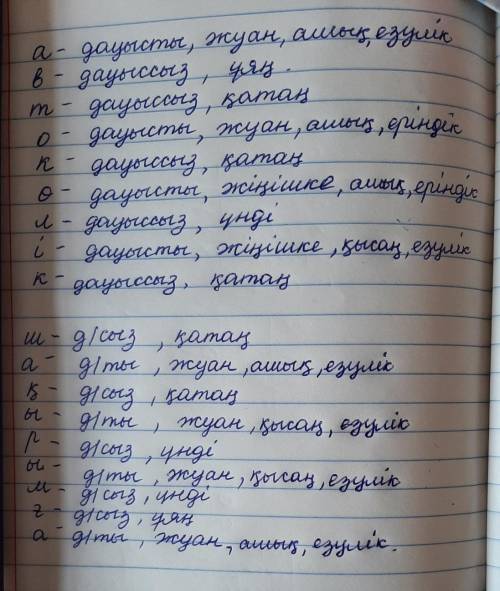 а - дауысты, жуан, ашық, езулік
в - дауыссыз, ұяң.
т - дауыссыз, қатаң
о - дауысты, жуан, ашық, еріндік
к - дауыссыз, қатаң
ө - дауысты, жіңішке, ашық, еріндік
л - дауыссыз, үнді
і - дауысты, жіңішке, қысаң, езулік
к - дауыссыз, қатаң
ш - д/сыз, қатаң
а - д/ты, жуан, ашық, езулік
қ - д/сыз, қатаң
ы - д/ты, жуан, қысаң, езулік
р - д/сыз, үнді
ы - д/ты, жуан, қысаң, езулік
м - д/сыз, үнді
г - д/сыз, ұяң
а - д/ты, жуан, ашық, езулік.